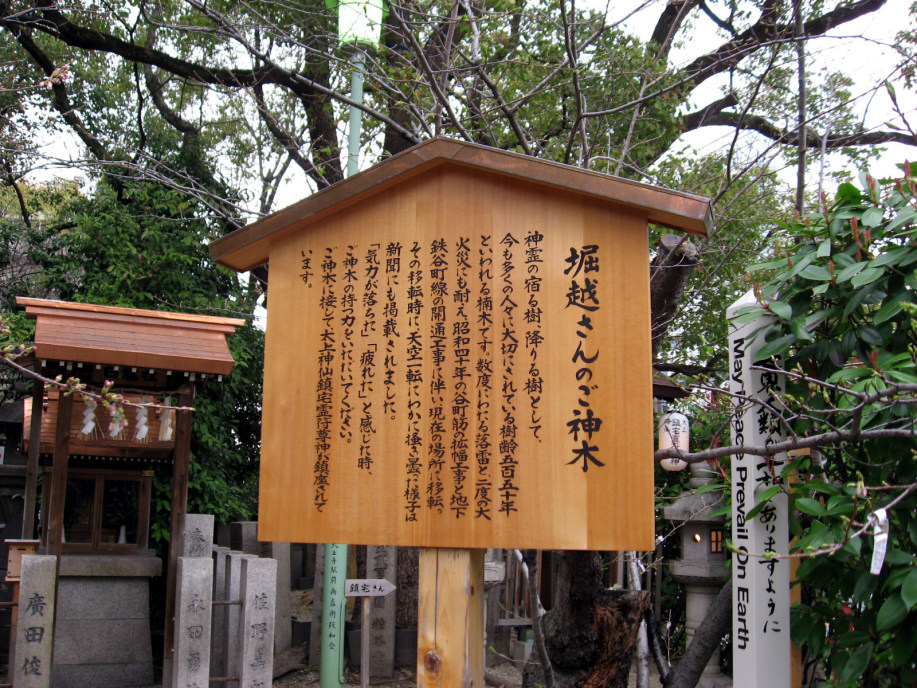 堀越さんのご神木
神霊の宿る樹、降りる樹として、
今も多くの人々に大切にされている樹齢五百五十年
といわれる楠木です。数度にわたる落雷と二度の大
火災にも耐え、昭和四十年の谷町筋の拡幅工事と地下
鉄谷町線の開通工事に伴い現在の場所に移転。
その移転時に大空一転にわかに掻き雲った様子は
新聞にも掲載されました。
「気力が落ちた」「疲れた」と感じた時、
ご神木の持つ力をいただいてください。
ご神木に接して大上神山鎮宅霊符尊神が鎮座されて
います。
鎮宅さん
May Peace Prevail On Earth
ありますように
廣田俊